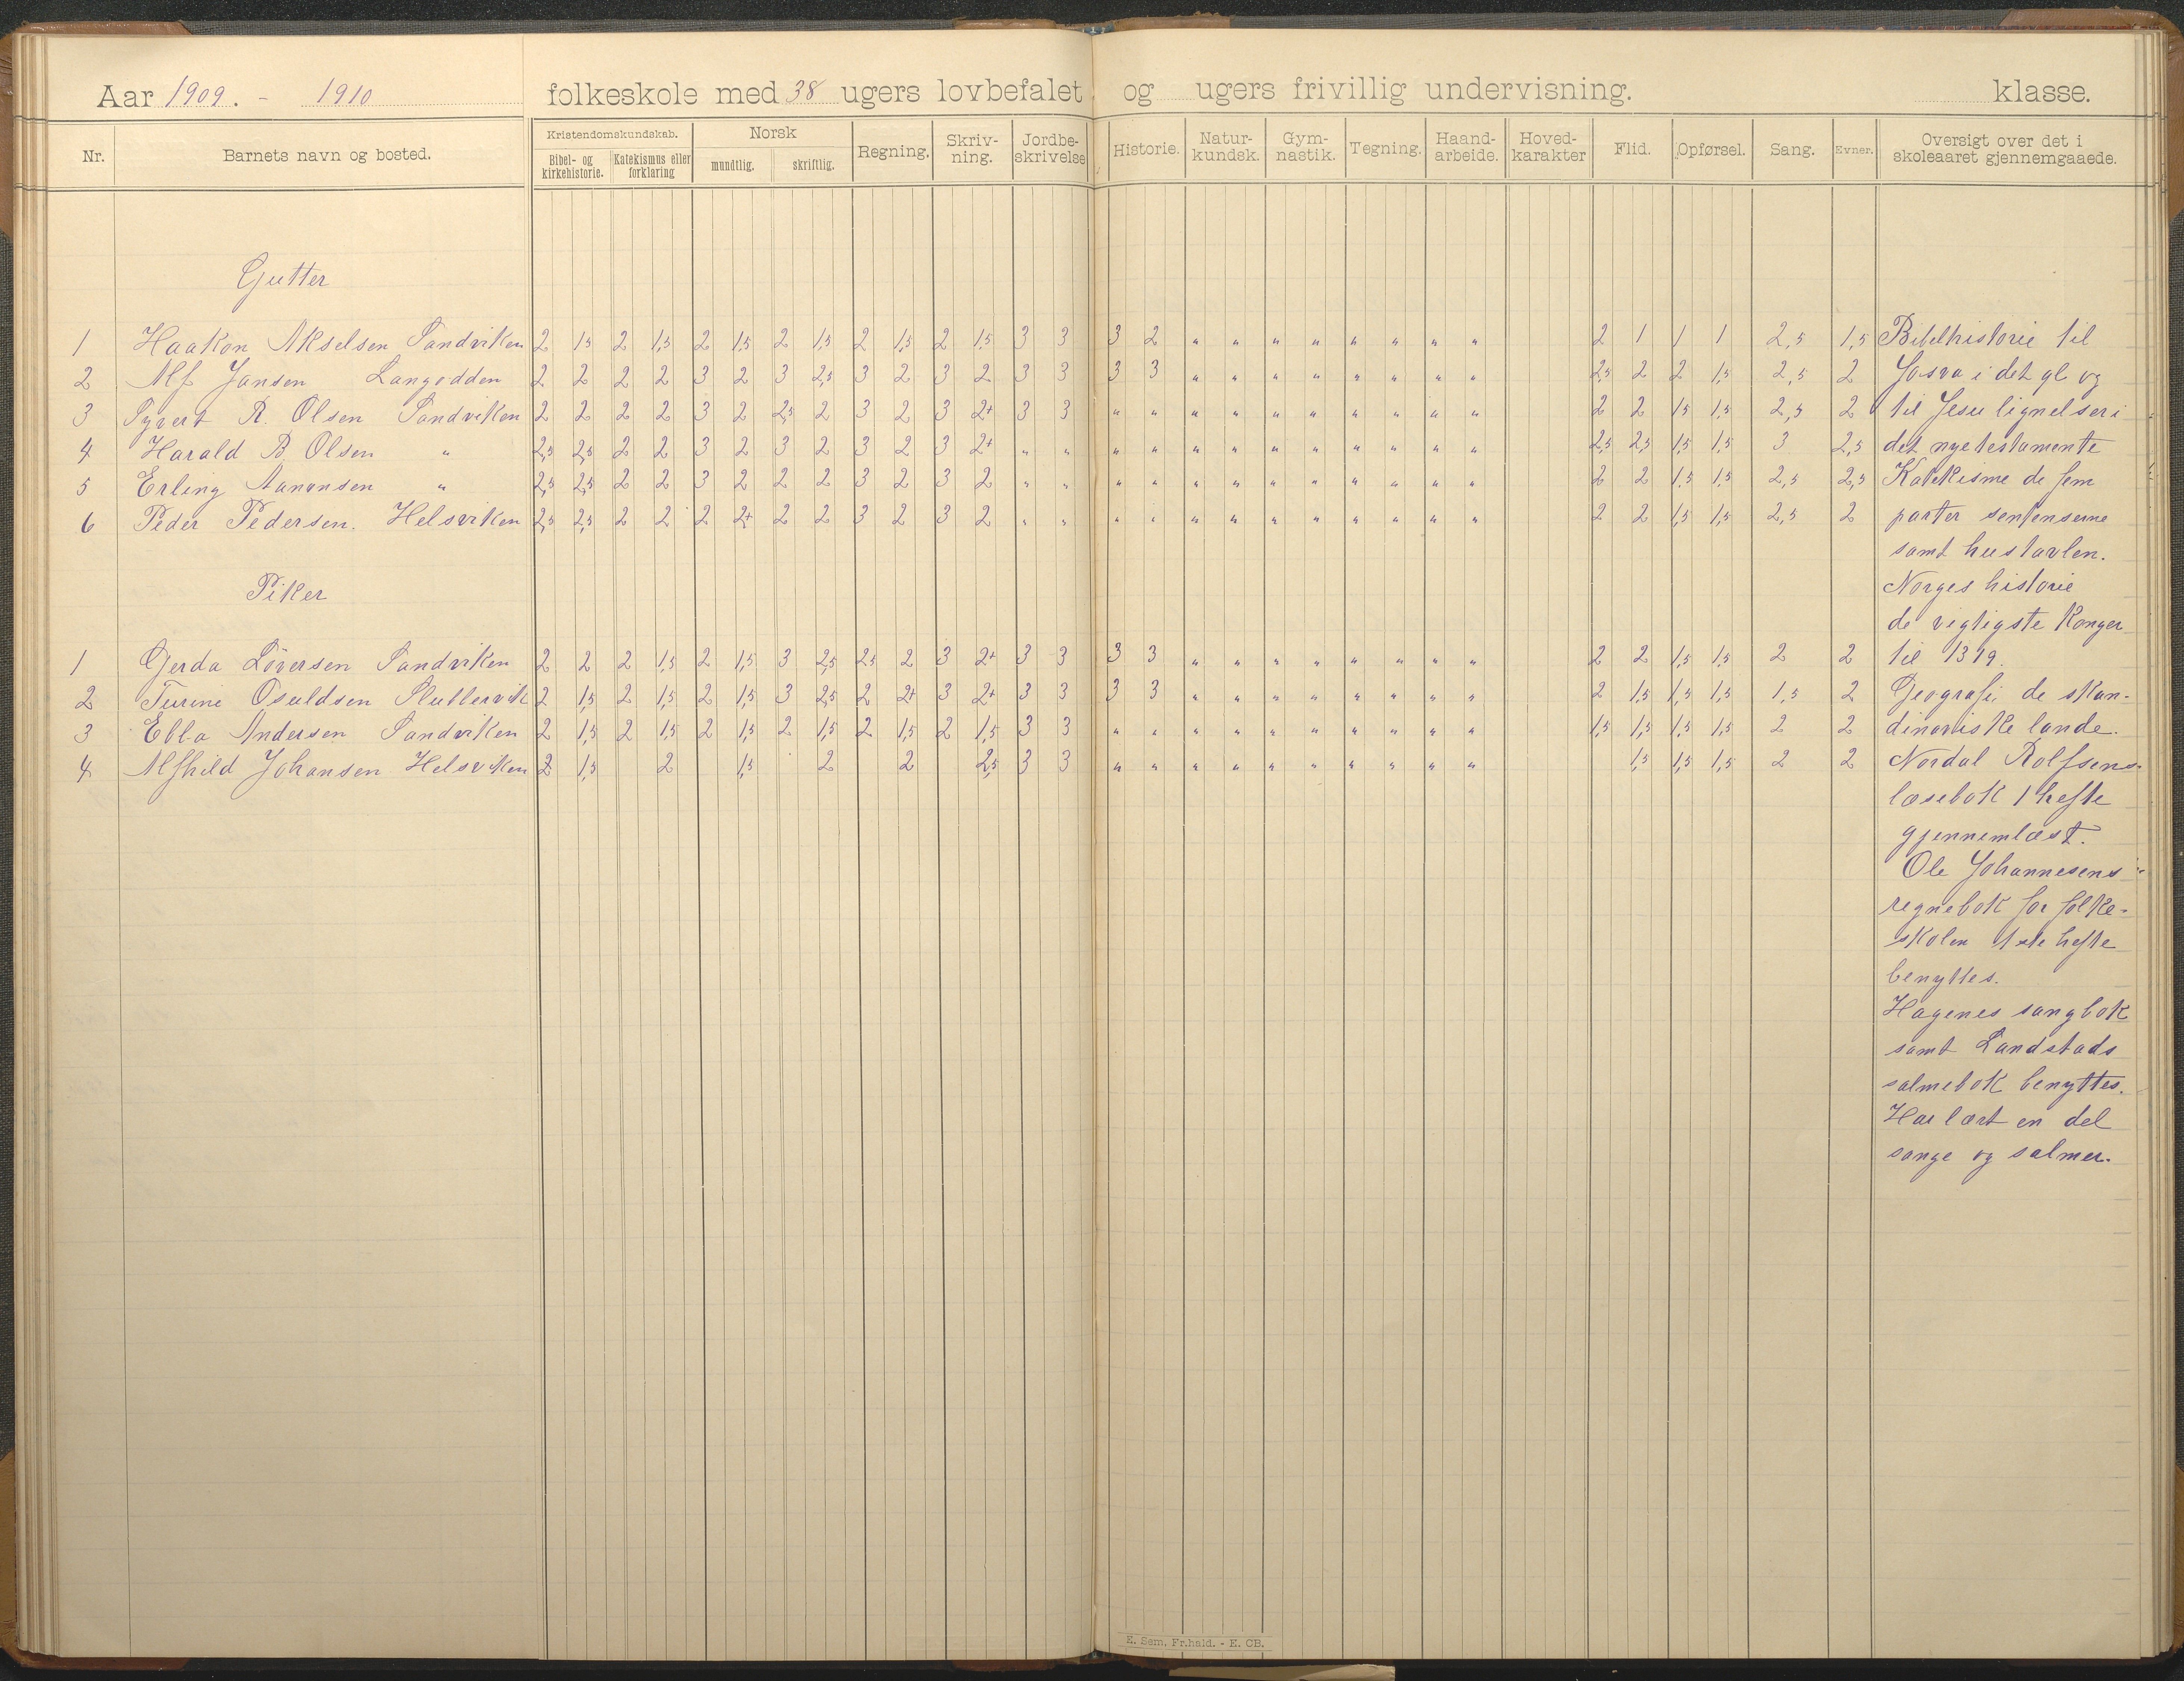 Aar 1909. - 1910 folkeskole med 38 ugers lovbefalet og ugers frivillig undervisning. klasse.
Nr. Barnets navn og bosted. Kristendomskundskab. Bibel- og kirkehistorie. Katekismus eller forklaring Norsk mundtlig. skriftlig. Regning. Skriv-ning. Jordbe-skrivelse Historie. Natur-kundsk. Gym-nastik. Tegning. Haand-arbeide. Hoved-karakter Flid. Opførsel. Sang. Evner. Oversigt over det i skoleaaret gjennemgaaede.
Gutter
1 Haakon Akselsen Sandviken 2 1,5 2 1,5 2 1,5 2 1,5 2 1,5 2 1,5 3 3 3 2 " " " " " " " " 2 1 1 1 2,5 1,5 Bibelhistorie til
2 Alf Jansen Langodden 2 2 2 2 3 2 3 2,5 3 2 3 2 3 3 3 3 " " " " " " " " 2,5 2 2 1,5 2,5 2 Josva i det gl og
3 Syvert R. Olsen Sandviken 2 2 2 2 3 2 2,5 2 3 2 3 2+ 3 3 " " " " " " " " " " 2 2 1,5 1,5 2,5 2 til Jesu lignelser i
4 Harald B. Olsen " 2,5 2,5 2 2 3 2 3 2 3 2 3 2+ " " " " " " " " " " " " 2,5 2,5 1,5 1,5 3 2,5 det nye testamente
5 Erling Aanonsen " 2,5 2,5 2 2 3 2 2 2 3 2 3 2 " " " " " " " " " " " " 2 2 1,5 1,5 2,5 2,5 Katekisme de fem
6 Peder Pedersen. Helsviken 2,5 2,5 2 2 2 2+ 2 2 3 2 3 2 " " " " " " " " " " " " 2 2 1,5 1,5 2,5 2 parter sentenserne
samt hustavlen.
Piker
Norges historie
de vigtigste Konger
1 Gerda Sörersen Sandviken 2 2 2 1,5 2 1,5 3 2,5 2,5 2 3 2+ 3 3 3 3 " " " " " " " " 2 2 1,5 1,5 2 2 til 1319.
2 Turine Osuldsen Slubbervik 2 1,5 2 1,5 2 1,5 3 2,5 2 2+ 3 2+ 3 3 3 3 " " " " " " " " 2 1,5 1,5 1,5 1,5 2 Geografi, de skan-
3 Ebba Andersen Sandviken 2 1,5 2 1,5 2 1,5 2 1,5 2 1,5 2 1,5 3 3 " " " " " " " " " " 1,5 1,5 1,5 1,5 2 2 dinaviske lande.
4 Alfhild Johansen Helsviken 2 1,5 2 1,5 2 2 2,5 3 3 " " " " " " " " " " 1,5 1,5 1,5 2 2 Nordal Rolfsens
læsebok 1 hefte
gjennemlæst.
Ole Johannesens
regnebok for folke-
skolen 1ste hefte
benyttes.
Hagenes sangbok
samt Landstads
salmebok benyttes.
Har lært en del
sange og salmer.
E. Sem, Fr.hald. - E. CB.